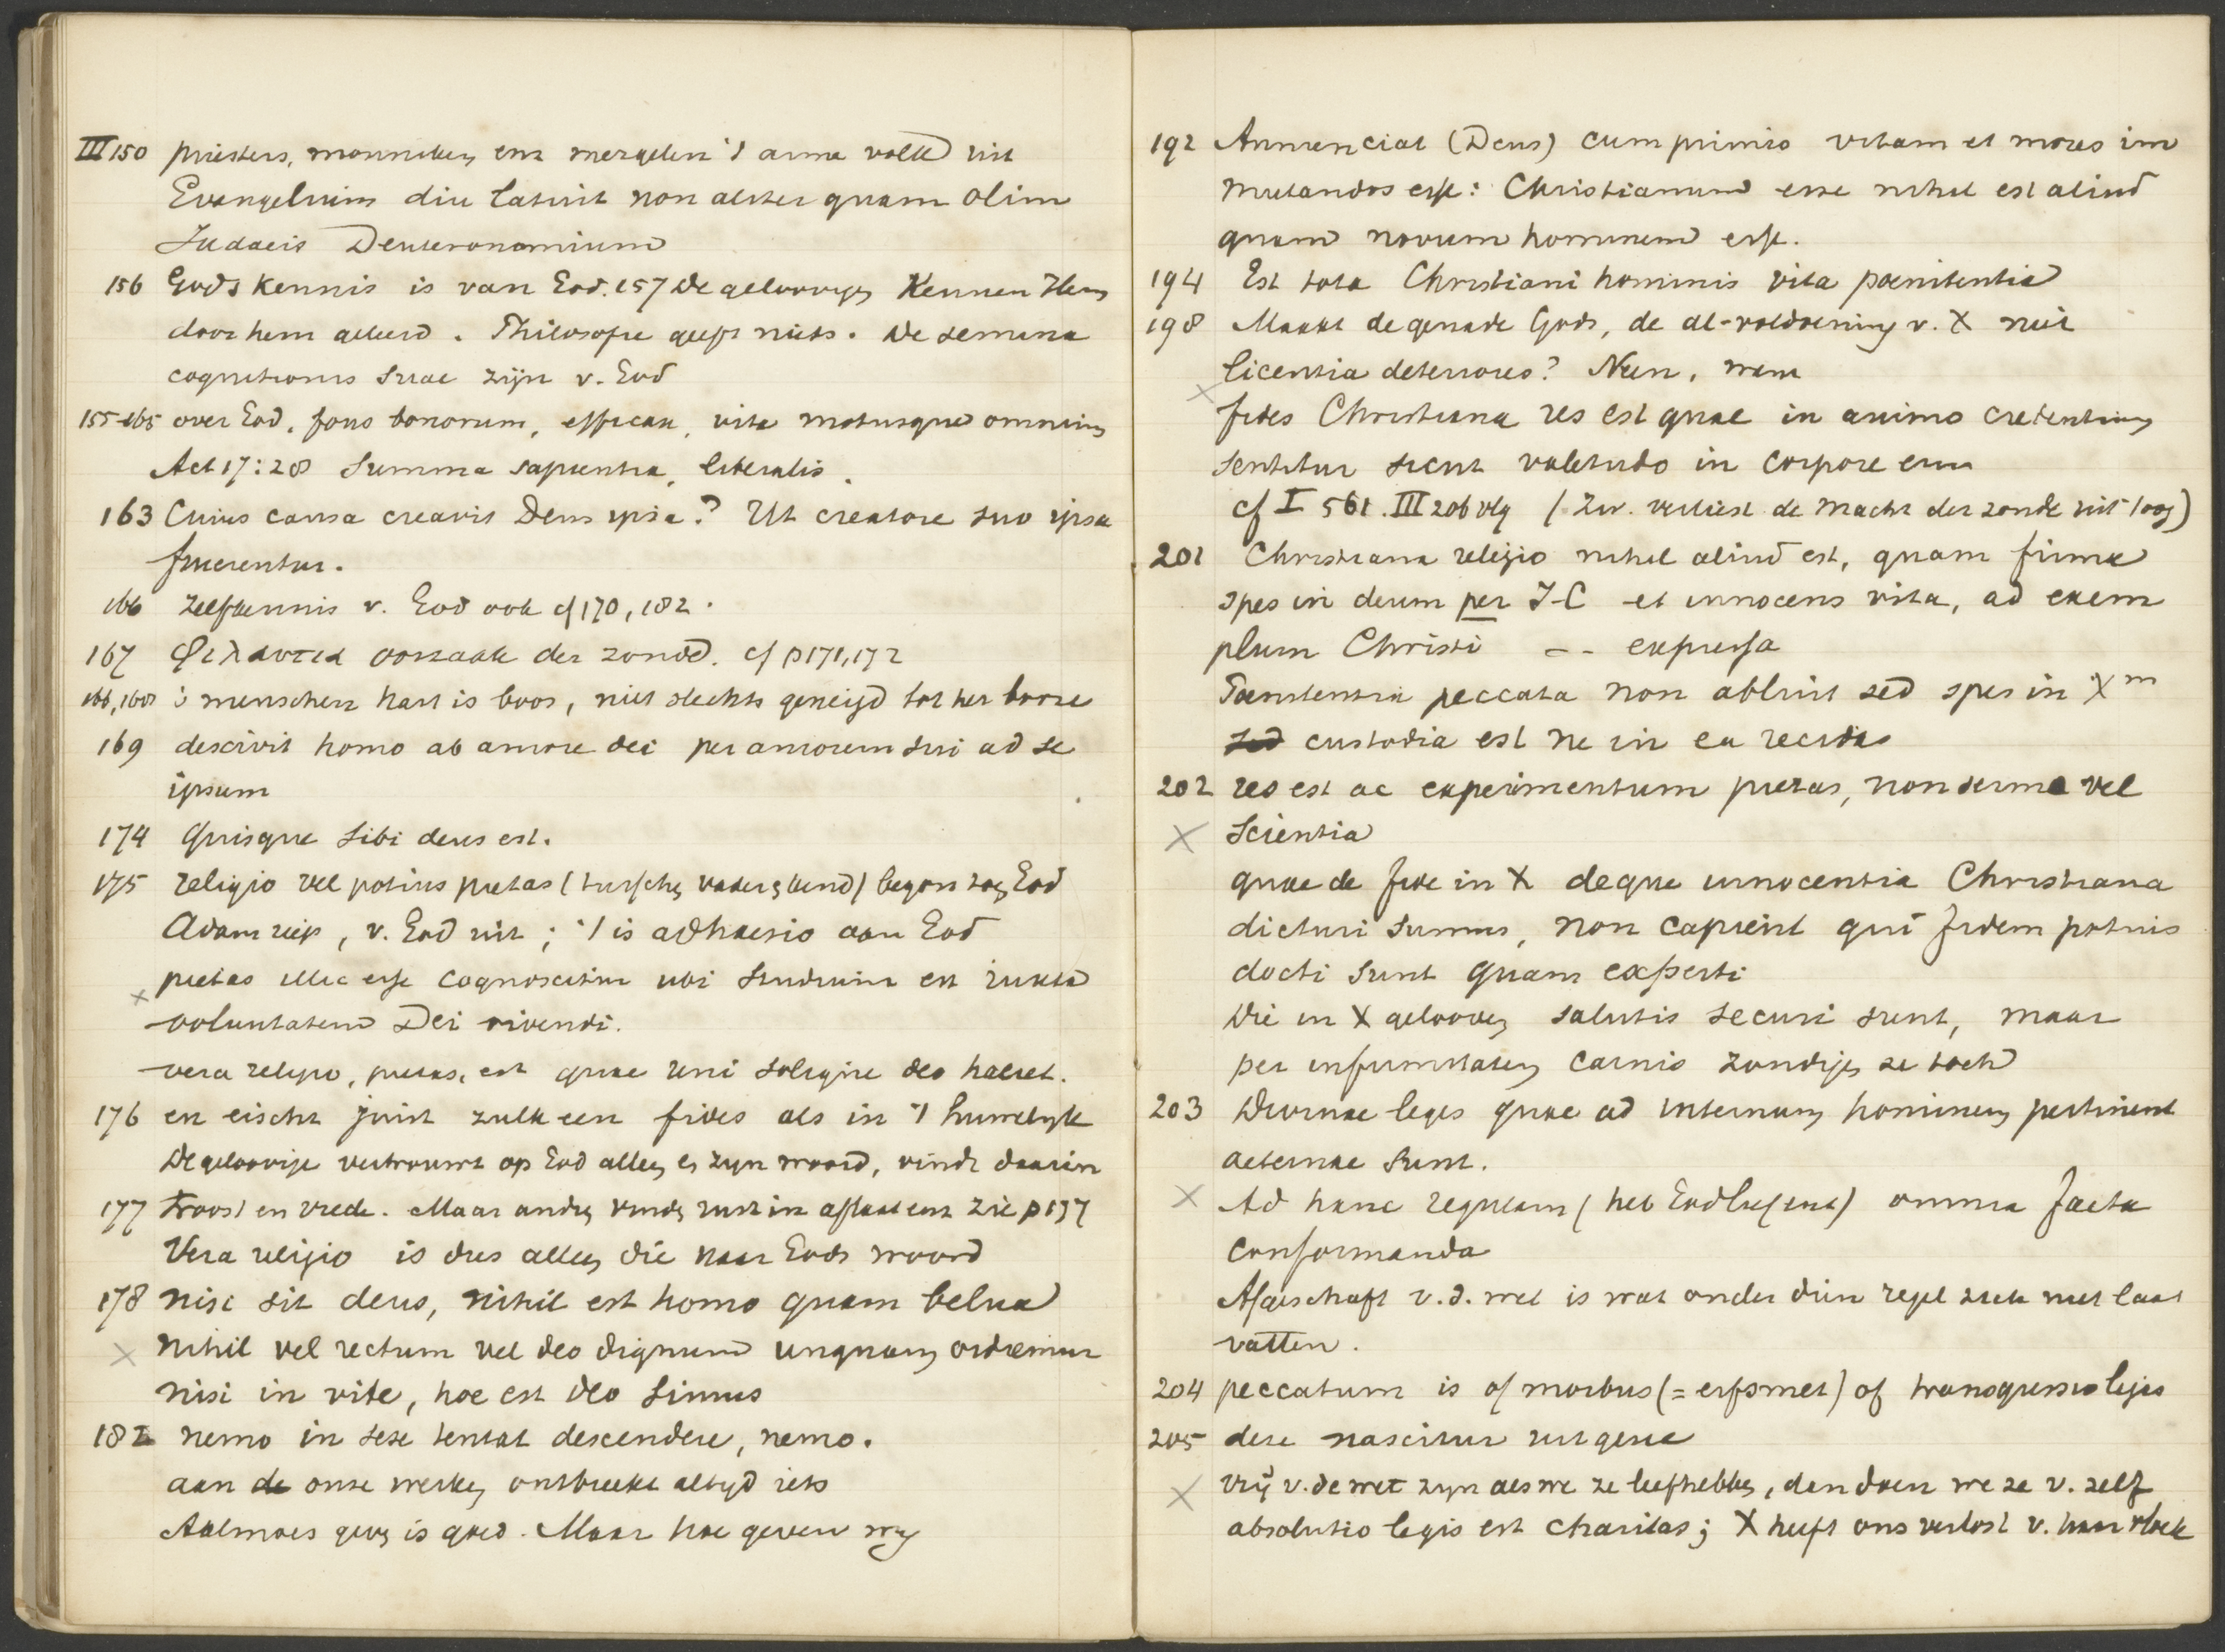 III 150 priesters, monniken, enz mergelen 't arme volk uit
Evangelium diu latuit non aliter quam olim
Judaeis Deuteronomium
156 Gods kennis is van God. 157 De geloovigen kennen Hem
door hem geleerd. Philosofie geeft niets. De semina
cognitionis suae zijn v. God
155-165 over God, fons bonorum, efficax, vita motusque omnium
Act 17:28 summa sapientia, liberalis.
163 Cuius causa creavit Deus ipsa? Ut creatore suo ipsa
fruerentur.
166 zelfkennis v. God ook cf 170, 182.
167 Φιλαυτια oorzaak der zonde. cf p 171, 172
166, 168 's menschen hart is boos, niet slechts geneigd tot het booze
169 descivit homo ab amore dei per amorem sui ad se
ipsum
174 Quisque sibi deus est.
175 religio vel potius pietas (tusschen vader en kind) begon toen God
Adam riep, v. God uit; 't is adhaesio aan God
x pietas illic esse cognoscitur ubi studium est iuxta
voluntatem Dei vivendi.
vera religio, pietas, est quae uni solique deo haeret.
176 en eischt juist zulk een fides als in 't huwelijk
De geloovige vertrouwt op God alleen en zijn woord, vindt daarin
177 troost en vrede. Maar andren vinden rust in aflaat enz zie p 177
Vera religio is dus alleen die naar Gods woord
178 nisi sit deus, nihil est homo quam belua
x nihil vel rectum vel deo dignum unquam ordiemur
nisi in vite, hoc est deo simus
182 nemo in sese tentat descendere, nemo.
aan de onze werken ontbreekt altijd iets
Aalmoes geven is goed. Maar hoe geven wij
192 Annunciat (Deus) cum primis vitam et mores im
mutandos esse: Christianum esse nihil est aliud
quam novum hominem esse.
194 Est tota Christiani hominis vita poenitentia
198 Maakt de genade Gods, de al-voldoening v. X niet
licentia deteriores? Neen, want
x fides Christiana res est quae in animo credentium
sentitur sicut valetudo in corpore enz
cf I 561. III 206 vlg (Zw. verliest de macht der zonde uit 't oog)
201 Christiana religio nihil aliud est, quam firma
spes in deum per J-C et innocens vita, ad exem
plum Christi -- expressa
Poenitentia peccata non abluit sed spes in X m
sed custodia est ne in ea recidas
202 res est ac experimentum pietas, non sermo vel
x scientia
quae de fide in X deque innocentia Christiana
dicturi sumus, non capient qui fidem potius
docti sunt quam experti
Die in X gelooven salutis securi sunt, maar
per infirmitatem carnis zondigen ze toch
203 Divinae leges quae ad internum hominem pertinent
aeternae sunt.
x Ad hanc regulam (heb God lief enz) omnia facta
conformanda
Afgeschaft v.d. wet is wat onder dien regel zich niet laat
vatten.
204 peccatum is of morbus (= erfsmet) of transgressio legis
205 deze nascitur uit gene
x vrij v. de wet zijn als we ze liefhebben, dan doen we ze v. zelf
absolutio legis est charitas; X heeft ons verlost v. haar vloek